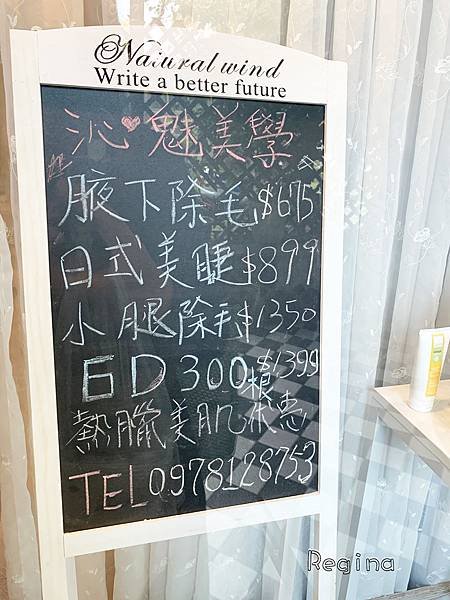 Natural wind
Write a better future
沁魅美學
腋下除毛$675
日式美睫$899
小腿除毛$1350
6D300根$1399
熱臘美肌優惠
TEL0978128753
Regina